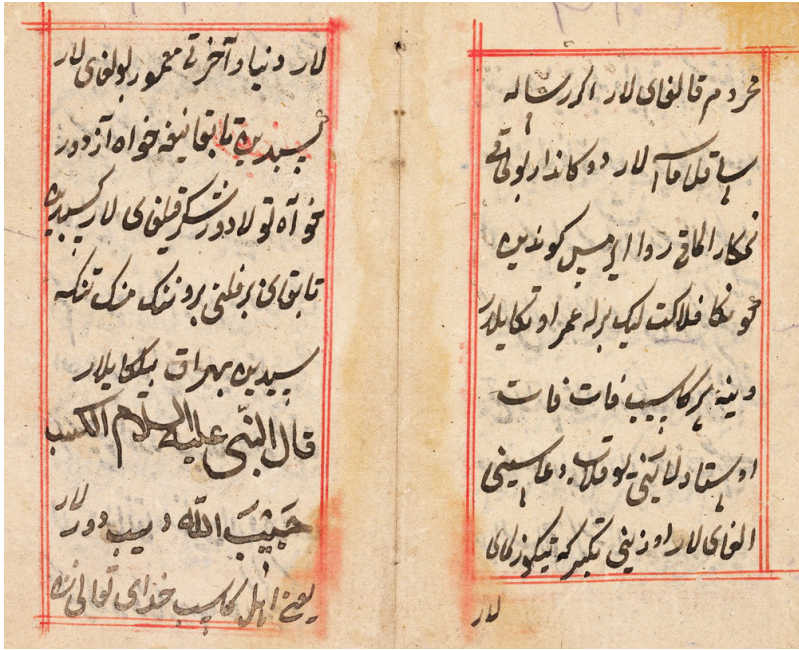 محروم قالغای لار اگر رساله
ساقلاماسالار دوکاندار بولماقی
الماقی روا ایرمیس کوندین
کونکا فلاکت لیک برله عمر اوتکایلار
وینه هر کاسیب فات فات
اوستادلارینی یوقلاب دعاسینی
الغای لار اوزینی تکبر که تیکوزمکای
لار
لار دنیا و آخرتی معمور بولغای لار
کسبیدین تابقانیغه خواه آزدور
خواه تولادور شکر قیلغای لار کسبیدین
تابقای بر فلنی بروننک منک تنکه
سیدین بهراق بیلکایلار
قال النّبی علیه السلام الکسب
حَبیْبَ اللّه دیب دورلار
یعنی اهل کاسیب خدای تعالی